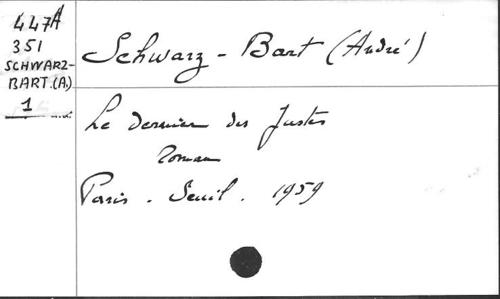 447A
351
SCHWARZ-
BART.(A.)
1
Schwarz - Bart (André)
Le dernier des Justes
Roman
Paris. Seuil. 1959